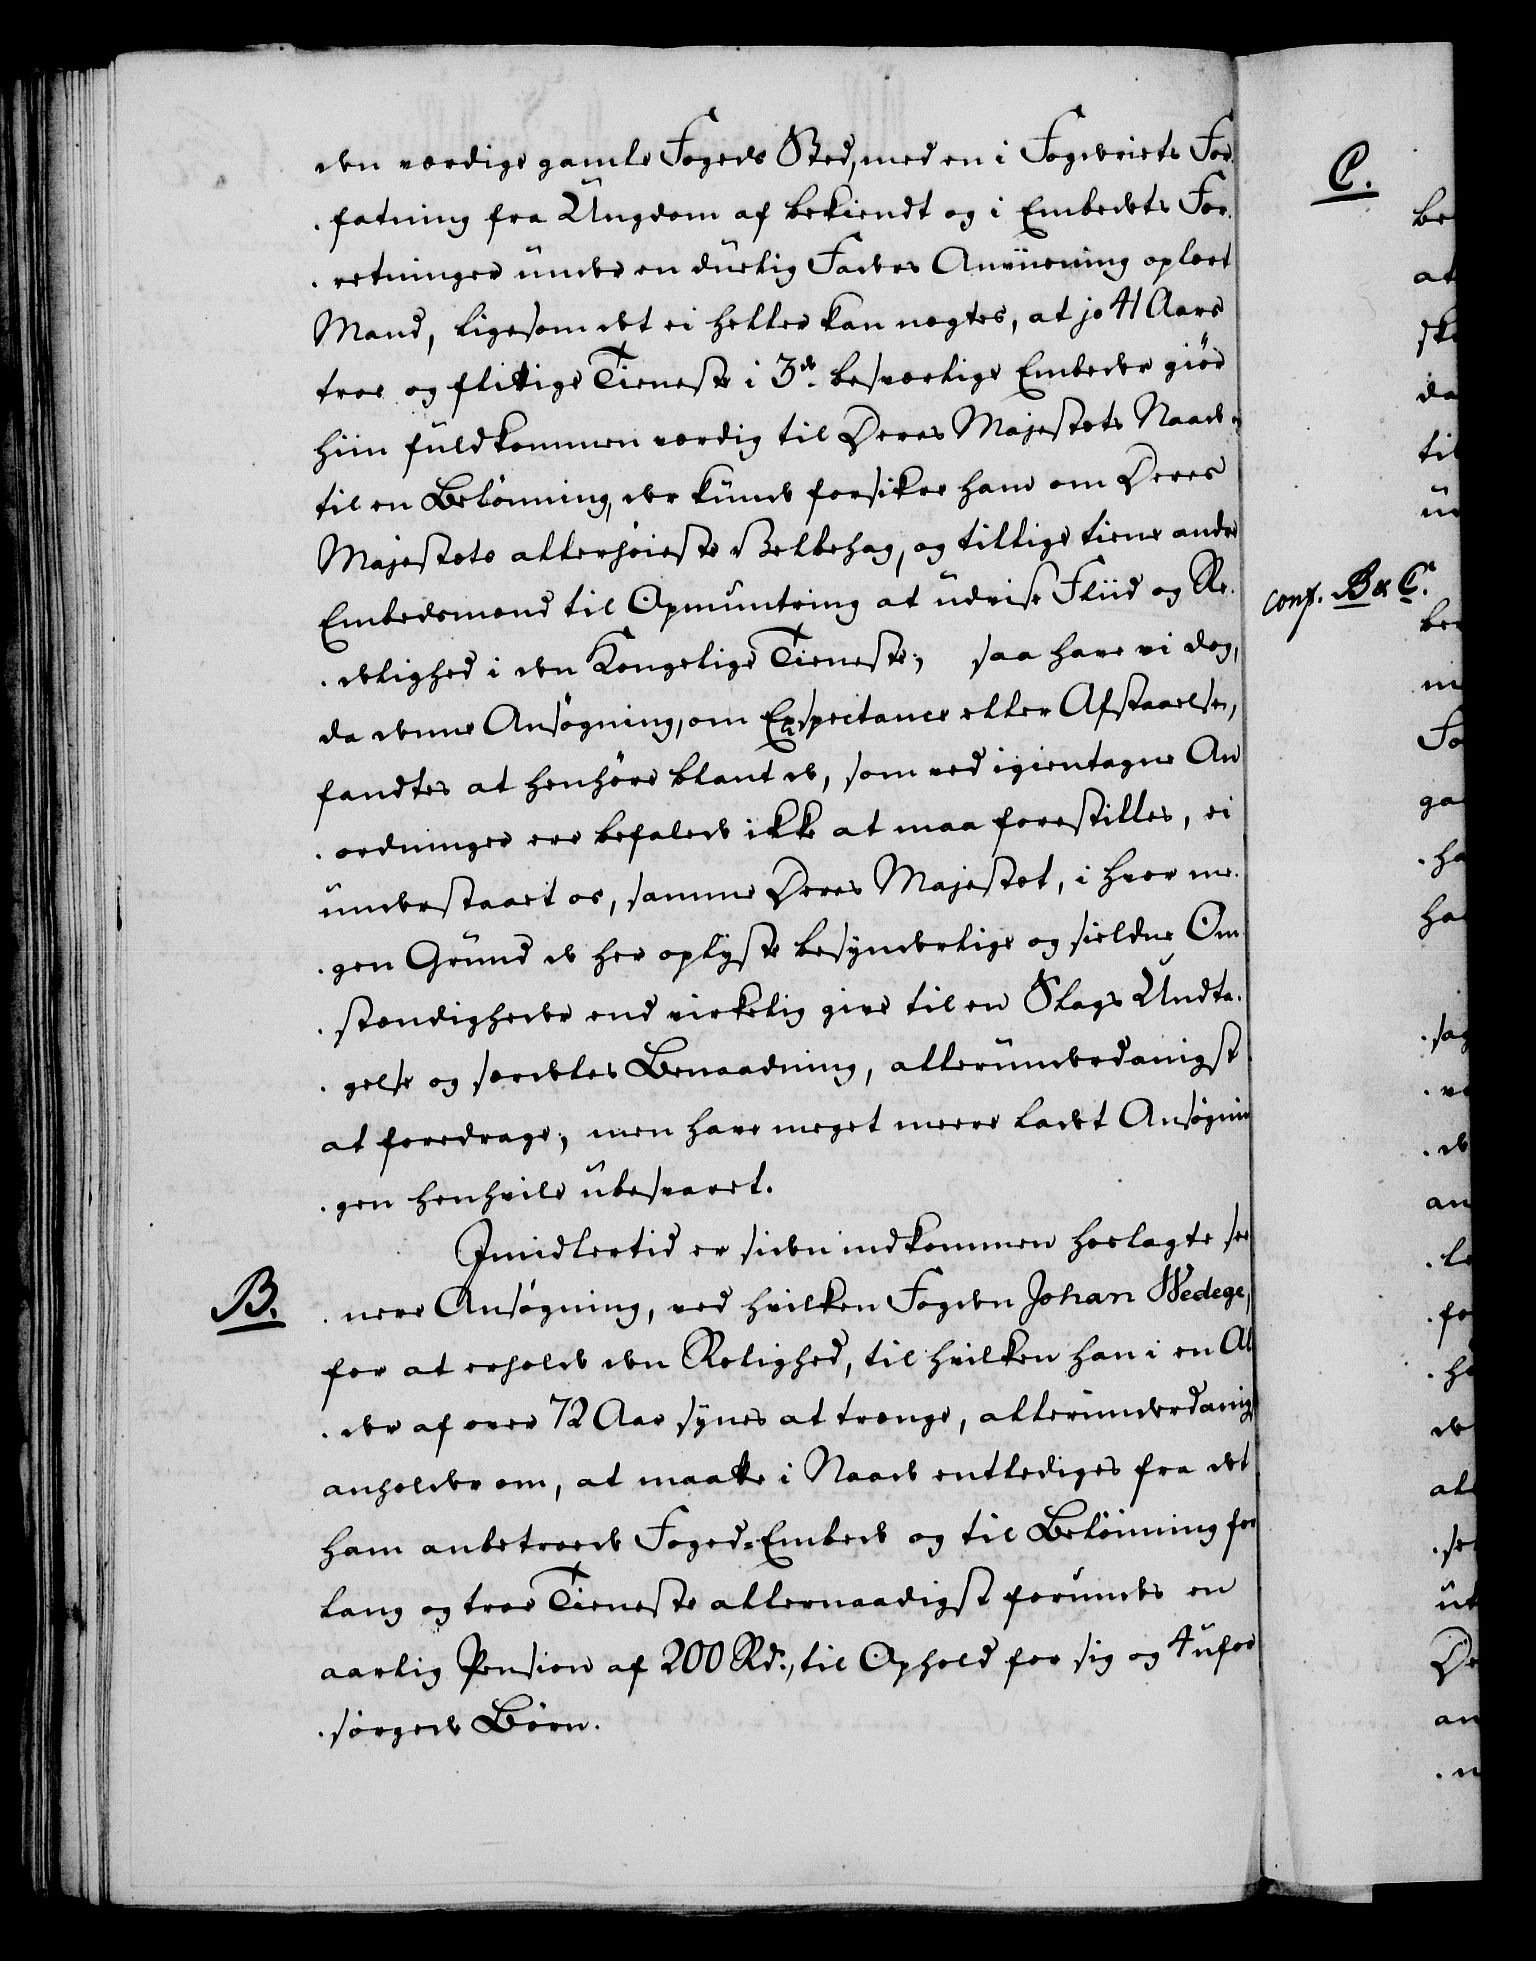 den værdige gamle Fogeds Sted, med en i Fogderiets For-
. fatning fra Ungdom af bekiendt og i Embedets For.
. retninger under en duelig Faders Anviisning oplært
Mand, ligesom det ei heller kan nægtes, at jo 41 Aars
troe og flittige Tieneste i 3de besværlige Embeder giør
hiin fuldkommen værdig til Deres Majestæts Naade og
til en Belønning, der kunde forsikre ham om Deres
Majestæts allerhøieste Velbehag, og tillige tiene andre
Embedsmænd til Opmuntring at udvise Fliid og Re.
. delighed i den Kongelige Tieneste; saa have vi dog,
da denne Ansøgning, om Exspectance eller Afstaaelse,
fandtes at henhøre blant de, som ved igientagne An
. ordninger ere befalede ikke at maa forestilles, ei
understaaet os, samme Deres Majestæt, i hvor me.
. gen Grund de her oplyste besynderlige og sieldne Om
. stændigheder end virkelig give til en Slags Undta.
. gelse og særdeles Benaadning, allerunderdanigst
at foredrage; men have meget meere ladet Ansøgnin
. gen henhvile ubesvaret.
Imidlertid er siden indkommen hoslagte see
B. . nere Ansøgning, ved hvilken Fogden Johan Wedege,
for at erholde den Rolighed, til hvilken han i en Al
. der af over 72 Aar synes at trænge, allerunderdanigst
anholder om, at maatte i Naade entlediges fra det
ham anbetroede Foged-Embede og til Belønning for
lang og troe Tieneste allernaadigst forundes en
aarlig Pension af 200 Rd., til Ophold for sig og 4 ufor
. sørgede Børn.
C.
conf. B & C.